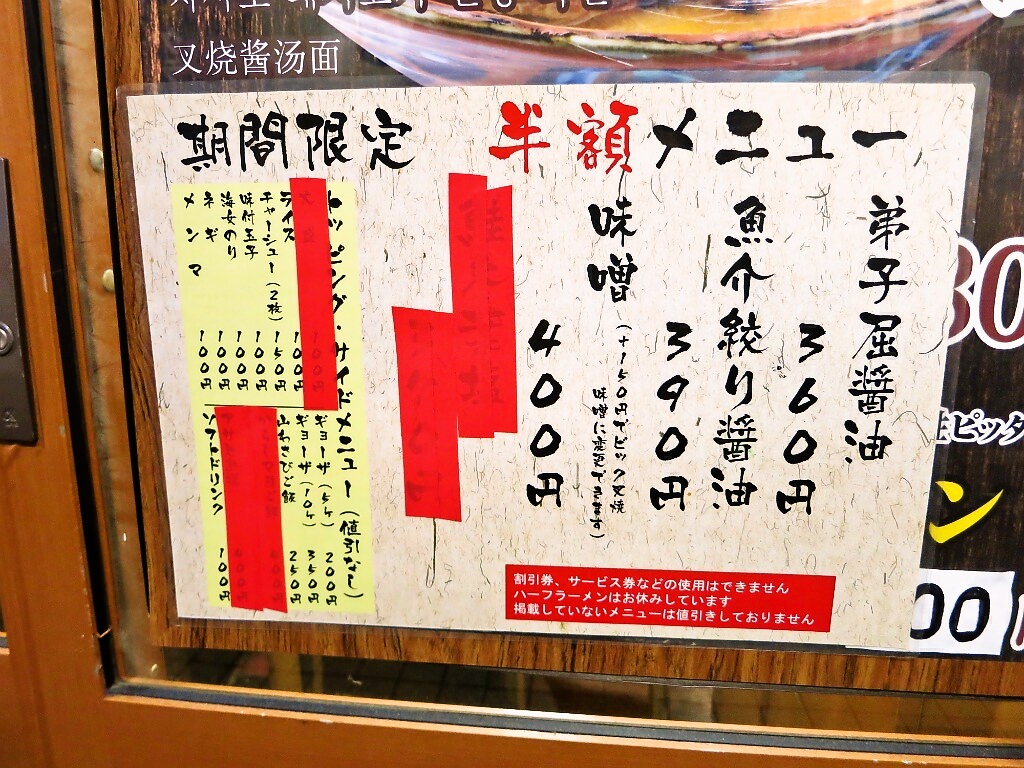 叉烧酱汤面
期間限定 半額メニュー
弟子屈醤油
360円
魚介絞り醤油
390円
(+150円でピック叉焼
味噌に変更できます)
味噌
400円
トッピング・サイドメニュー(値引なし)
ライス 100円
チャーシュー(2枚) 150円
味付玉子 100円
海女のり 100円
ネギ 100円
メンマ 100円
ギョーザ(5ケ) 200円
ギョーザ(10ケ) 350円
山わさびご飯 250円
ソフトドリンク 100円
割引券、サービス券などの使用はできません
ハーフラーメンはお休みしています
掲載していないメニューは値引きしておりません
ピッタ
ン
00